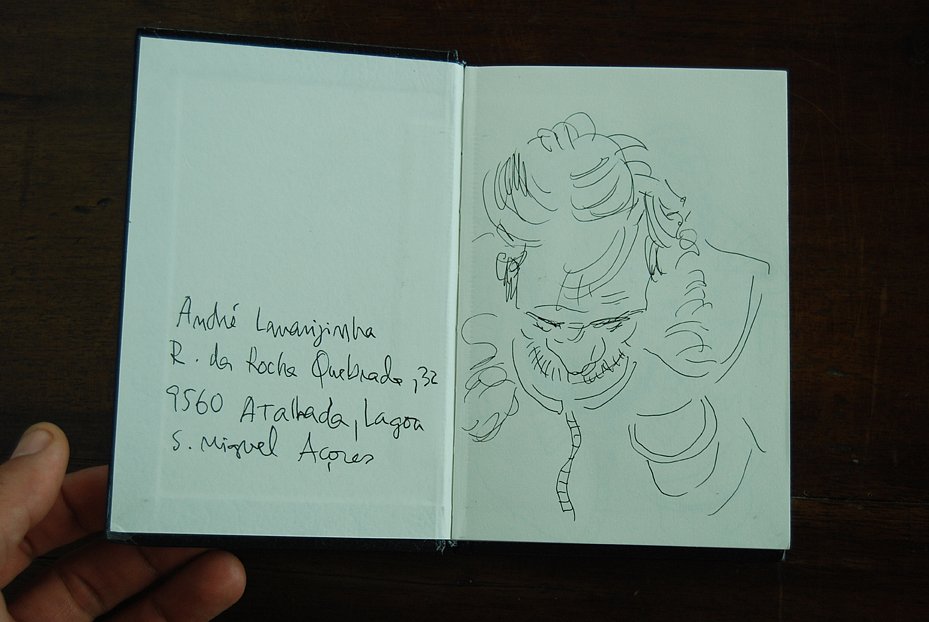 André Laranjinha
R. da Rocha Quebrada, 32
9560 Atalhada, Lagoa
S. Miguel Açores